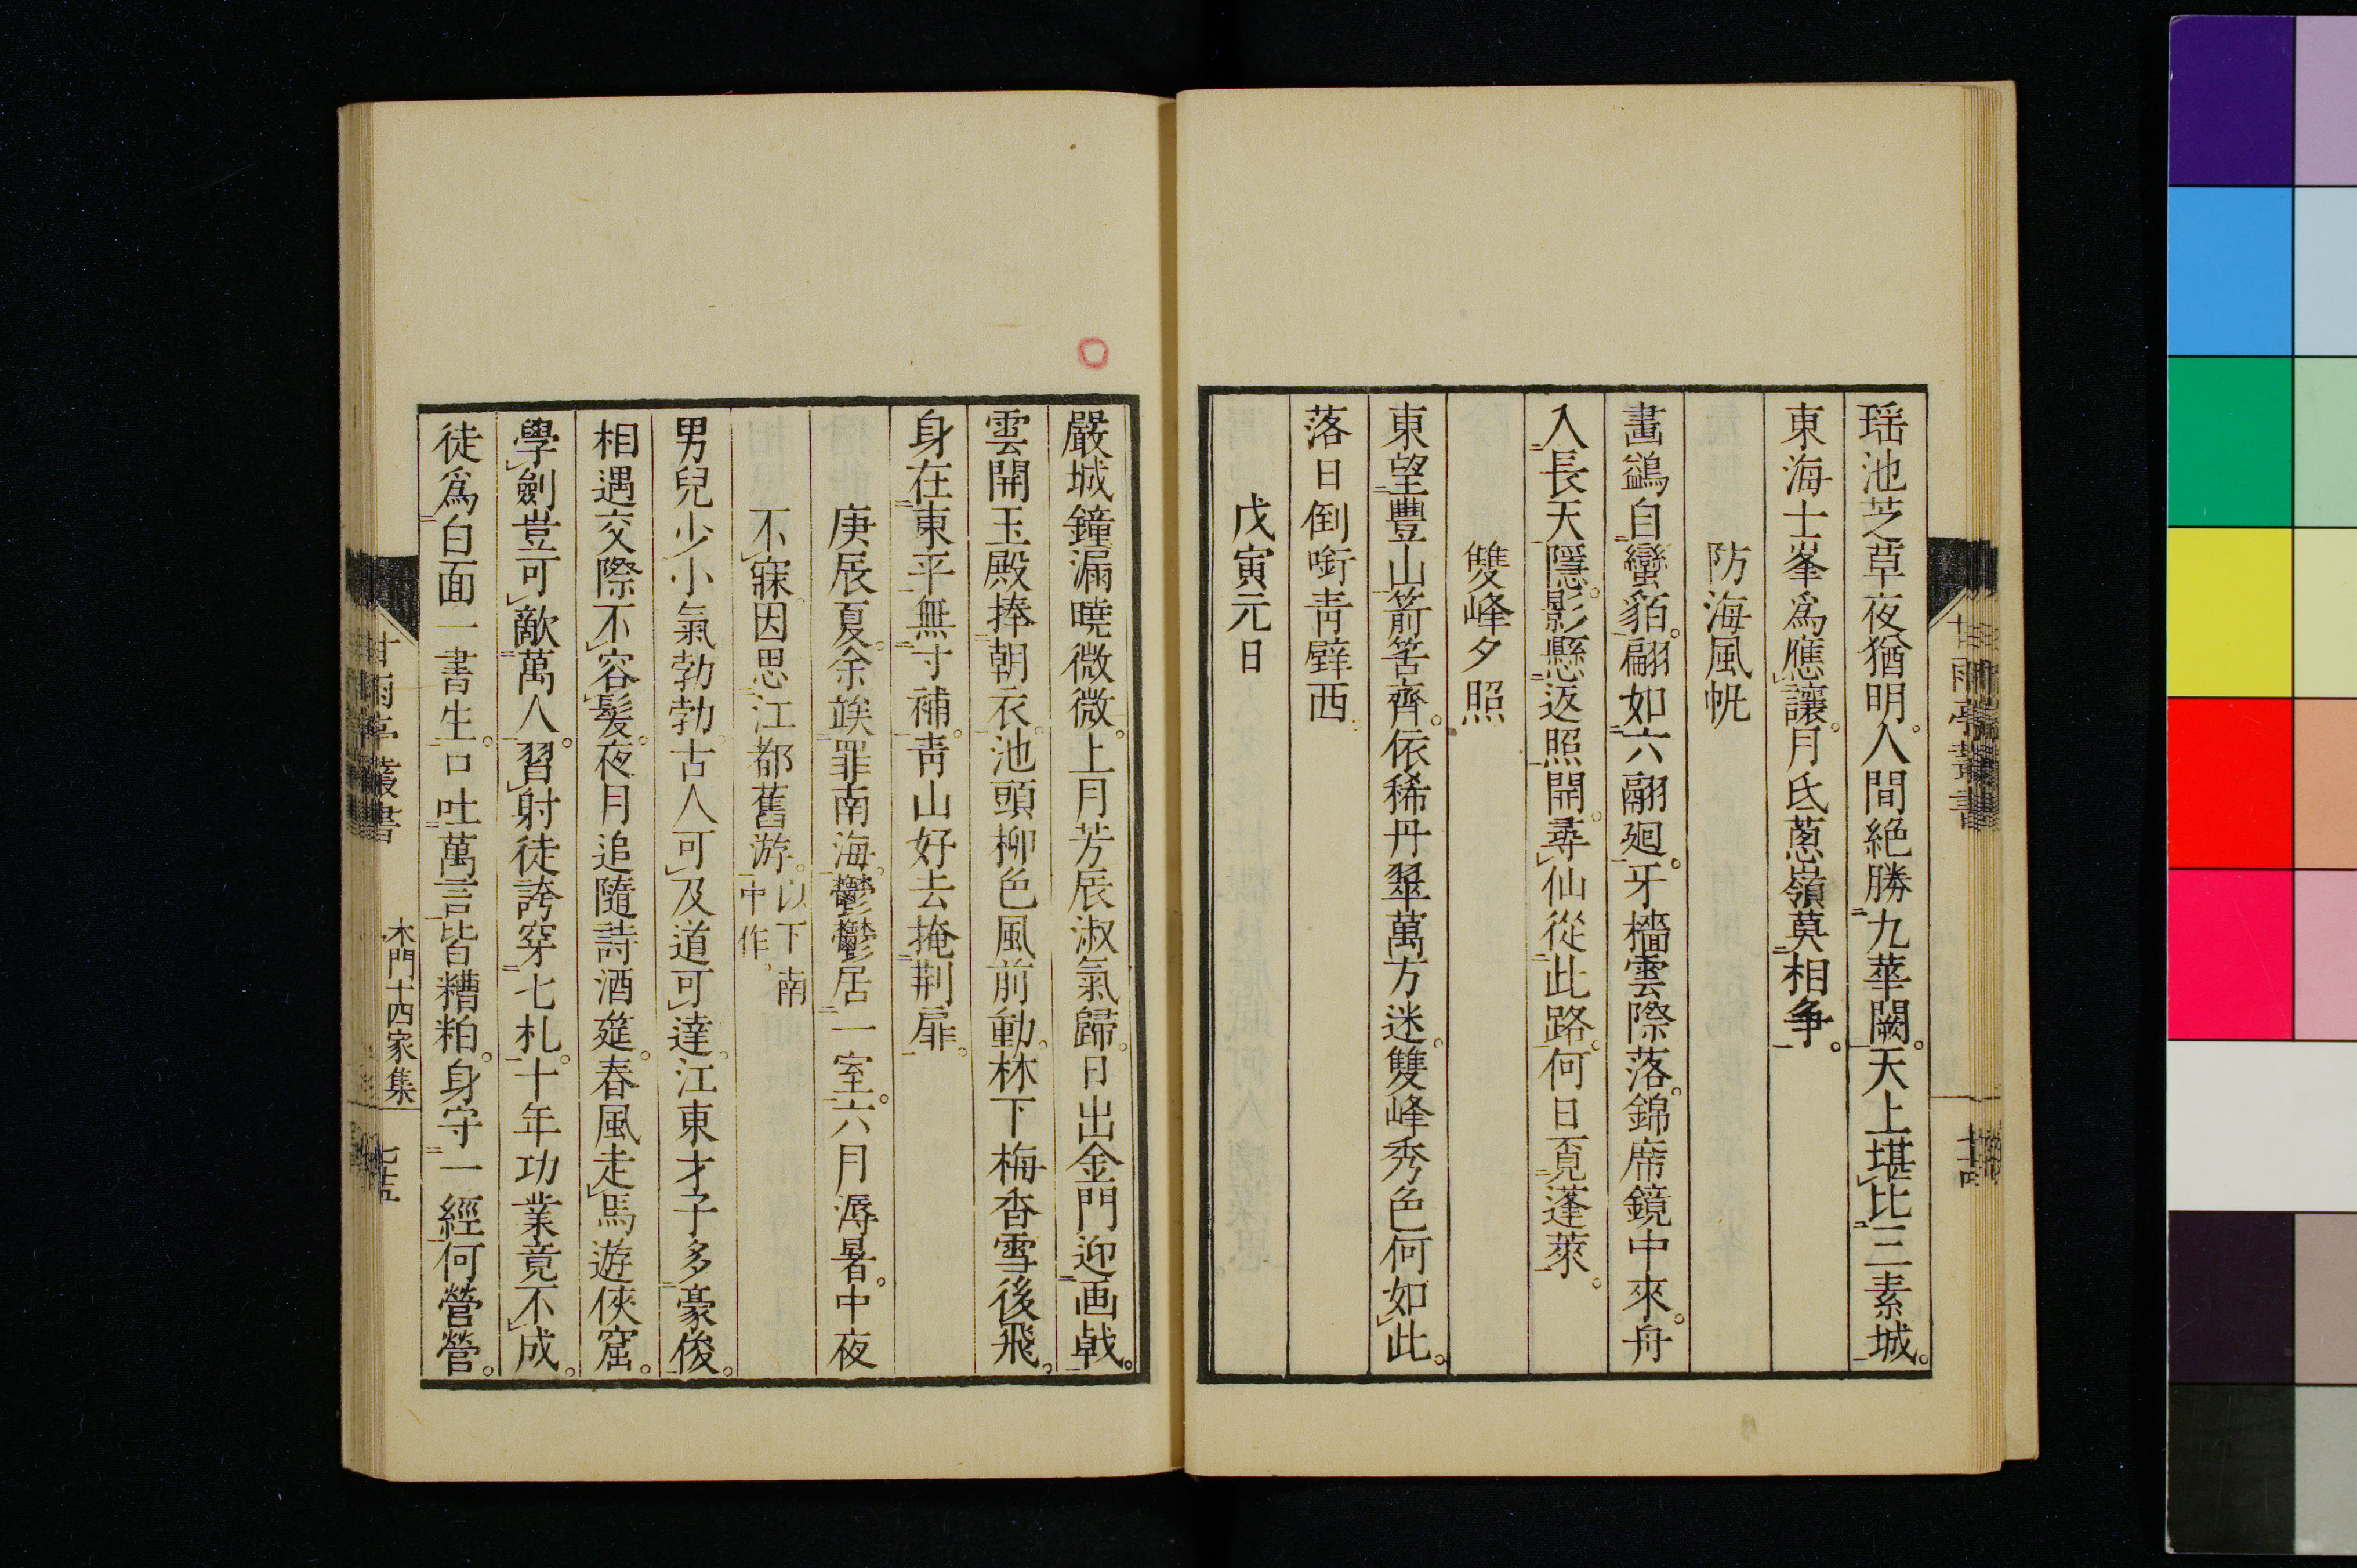 瑶池芝草夜猶明。人間絶勝九華闕。天上堪比三素城。
東海士峯爲應讓。月氏蔥嶺莫相争。
防海風帆
畵鷁自蠻貊。翩如六翮廻。牙檣雲際落。錦席鏡中來。舟
入長天隱。影懸返照開。尋仙從此路。何日覔蓬萊。
雙峰夕照
東望豐山箭筈齊。依稀丹翠萬方迷。雙峰秀色何如此。
落日倒啣靑壁西
戊寅元日
嚴城鐘漏曉微微。上月芳辰淑氣歸。日出金門迎画戟。
雲開玉殿捧朝衣。池頭柳色風前動。林下梅香雪後飛。
身在東平無寸補。靑山好去掩荆扉。
庚辰夏。余竢罪南海。鬱鬱居一室。六月溽暑。中夜
不寐。因思江都舊游。以下南中作
男兒少小氣勃勃。古人可及道可達。江東才子多豪俊。
相遇交際不容髮。夜月追隨詩酒筵。春風走馬遊俠窟。
學劍豈可敵萬人。習射徒誇穿七札。十年功業竟不成。
徒爲白面一書生。口吐萬言皆糟粕。身守一經何營營。
甘雨亭叢書
木門十四家集
七五